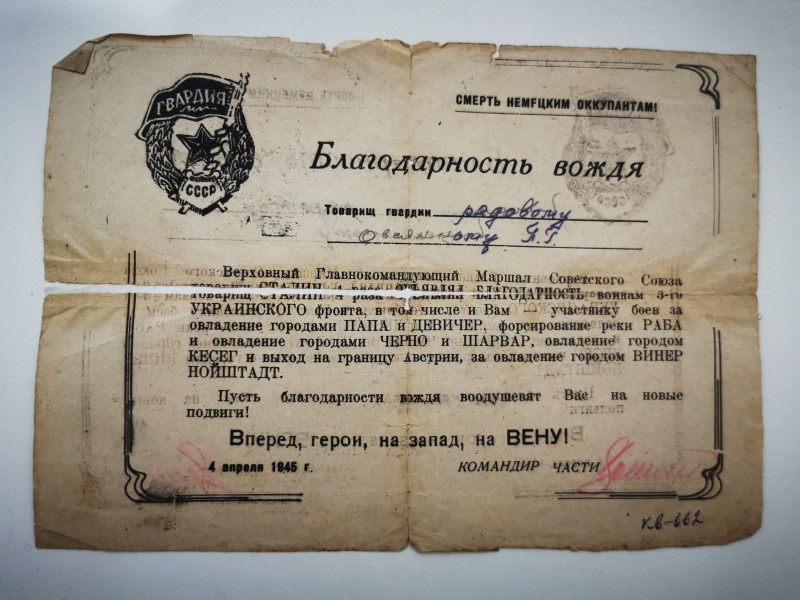 ГВАРДИЯ
СССР
СМЕРТЬ НЕМЕЦКИМ ОККУПАНТАМ!
Благодарность вождя
Товарищ гвардии рядовому
П.Г
Верховный Главнокомандующий Маршал Советского Союза
товарищ СТАЛИН 4 раза ОБЪЯВЛЯЛ БЛАГОДАРНОСТЬ воинам 3-го
УКРАИНСКОГО фронта, в том числе и Вам участнику боев за
овладение городами ПАПА и ДЕВИЧЕР, форсирование реки РАБА
и овладение городами ЧЕРНО и ШАРВАР, овладение городом
КЕСЕГ и выход на границу Австрии, за овладение городом ВИНЕР
НОЙШТАДТ.
Пусть благодарности вождя воодушевят Вас на новые
подвиги!
Вперед, герои, на запад, на ВЕНУ!
4 апреля 1945 г.
КОМАНДИР ЧАСТИ
КВ-662